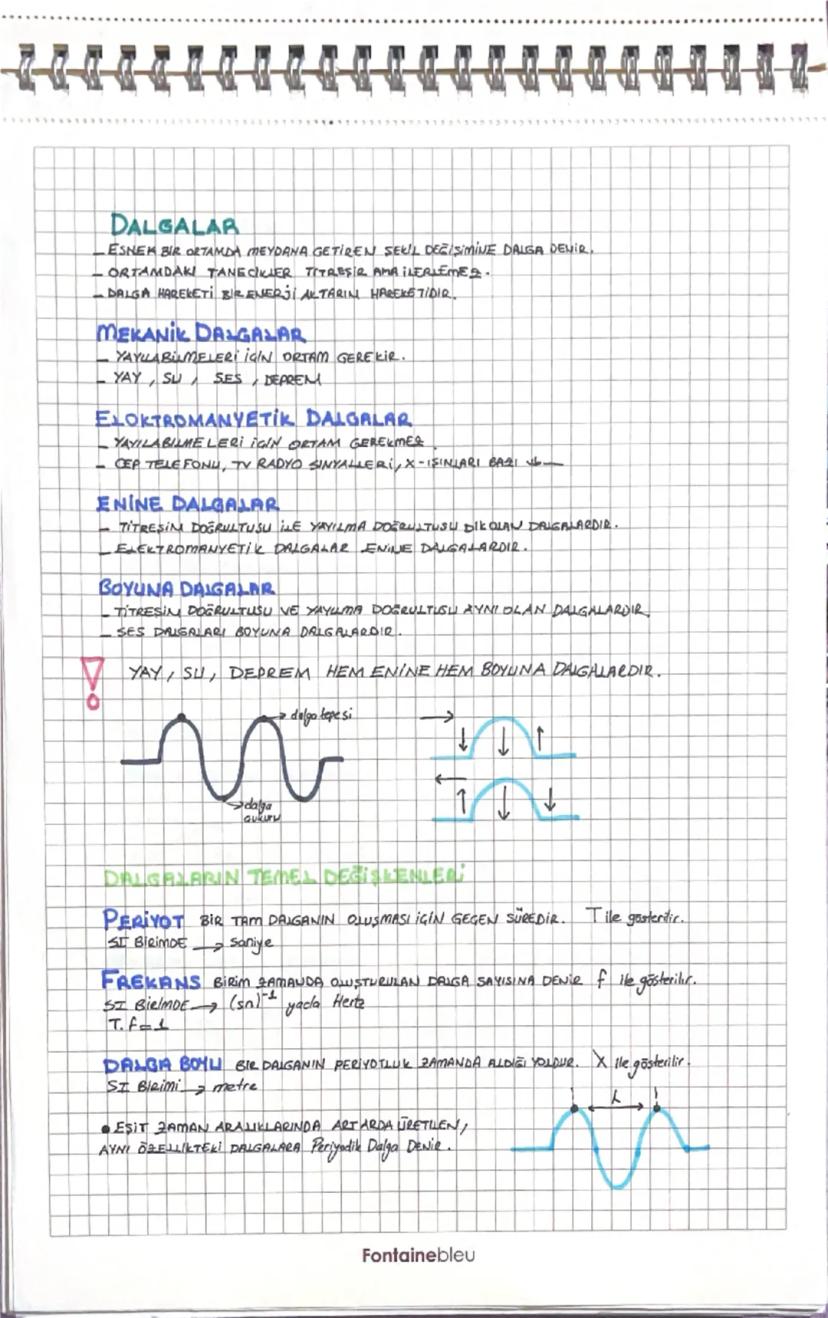 DALGALAR
– ESNEK BİR ORTAMDA MEYDANA GETİREN ŞEKİL DEĞİŞİMİNE DALGA DENİR.
– ORTAMDAKİ TANECİKLER TİTREŞİR AMA İLERLEMEZ.
– DALGA HAREKETİ BİR ENERJİ AKTARIM HAREKETİDİR.
MEKANİK DALGALAR
– YAYILABİLMELERİ İÇİN ORTAM GEREKİR.
– YAY, SU, SES, DEPREM
ELOKTROMANYETİK DALGALAR
– YAYILABİLMELERİ İÇİN ORTAM GEREKMEZ.
– CEP TELEFONU, TV RADYO SİNYALLERİ, X-IŞINLARI BAZI
ENİNE DALGALAR
– TİTREŞİM DOĞRULTUSU İLE YAYILMA DOĞRULTUSU DİK OLAN DALGALARDIR.
– ELEKTROMANYETİK DALGALAR ENİNE DALGALARDIR.
BOYUNA DALGALAR
– TİTREŞİM DOĞRULTUSU VE YAYILMA DOĞRULTUSU AYNI OLAN DALGALARDIR
– SES DALGALARI BOYUNA DALGALARDIR.
! YAY, SU, DEPREM HEM ENİNE HEM BOYUNA DALGALARDIR.
→ dalga tepesi
→ dalga
çukuru
DALGALARIN TEMEL DEĞİŞKENLERİ
PERİYOT BİR TAM DALGANIN OLUŞMASI İÇİN GEÇEN SÜREDİR. T ile gösterilir.
SI BİRİMDE → saniye
FREKANS BİRİM ZAMANDA OLUŞTURULAN DALGA SAYISINA DENİR f ile gösterilir.
SI BİRİMDE → (sn)⁻¹ yada Hertz
T.f=1
DALGA BOYU BİR DALGANIN PERİYOTLUK ZAMANDA ALDIĞI YOLDUR. λ ile gösterilir.
SI BİRİMİ → metre
λ
• EŞİT ZAMAN ARALIKLARINDA ART ARDA ÜRETİLEN,
AYNI ÖZELLİKTEKİ DALGALARA Periyodik Dalga DENİR.
Fontainebleu